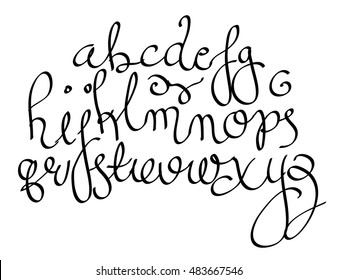 abcdefg
hijklmnops
qrstuvwxyz
shutterstock.com · 483667546